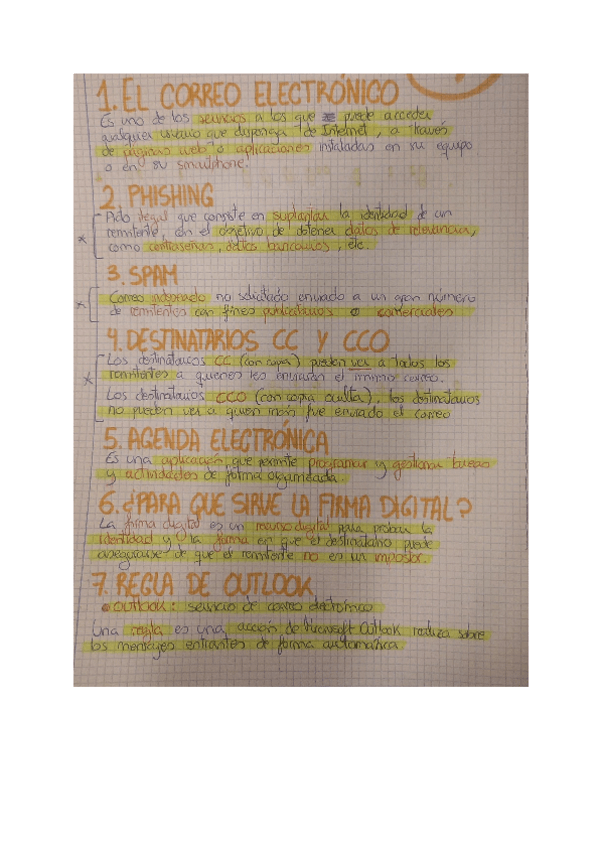 1. EL CORREO ELECTRÓNICO
Es uno de los servicios a los que se puede acceder
cualquier usuario que disponga de Internet, a través
de páginas web o aplicaciones instaladas en su equipo
o en su smartphone.
2. PHISHING
Acto ilegal que consiste en suplantar la identidad de un
remitente, con el objetivo de obtener datos de relevancia,
como contraseñas, datos bancarios, etc.
3. SPAM
Correo indeseado no solicitado enviado a un gran número
de remitentes con fines publicitarios o comerciales
4. DESTINATARIOS CC Y CCO
Los destinatarios CC (con copia) pueden ver a todos los
remitentes a quienes les enviaron el mismo correo.
Los destinatarios CCO (con copia oculta), los destinatarios
no pueden ver a quien más fue enviado el correo
5. AGENDA ELECTRÓNICA
Es una aplicación que permite programar y gestionar tareas
y actividades de forma organizada.
6. ¿PARA QUE SIRVE LA FIRMA DIGITAL?
La firma digital es un recurso digital para probar la
identidad y la forma en que el destinatario puede
asegurarse de que el remitente no es un impostor.
7. REGLA DE OUTLOOK
outlook: servicio de correo electrónico
Una regla es una acción de Microsoft Outlook realiza sobre
los mensajes entrantes de forma automática